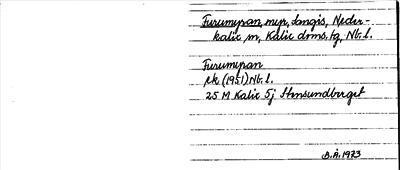 Furumypan, myr, längis, Neder-
kalix sn, Kalix dms. tg, Nb. l.
Furumypan
rk (1951) Nb. l.
25 M Kalix 5j Stensundberget
B.Å. 1973